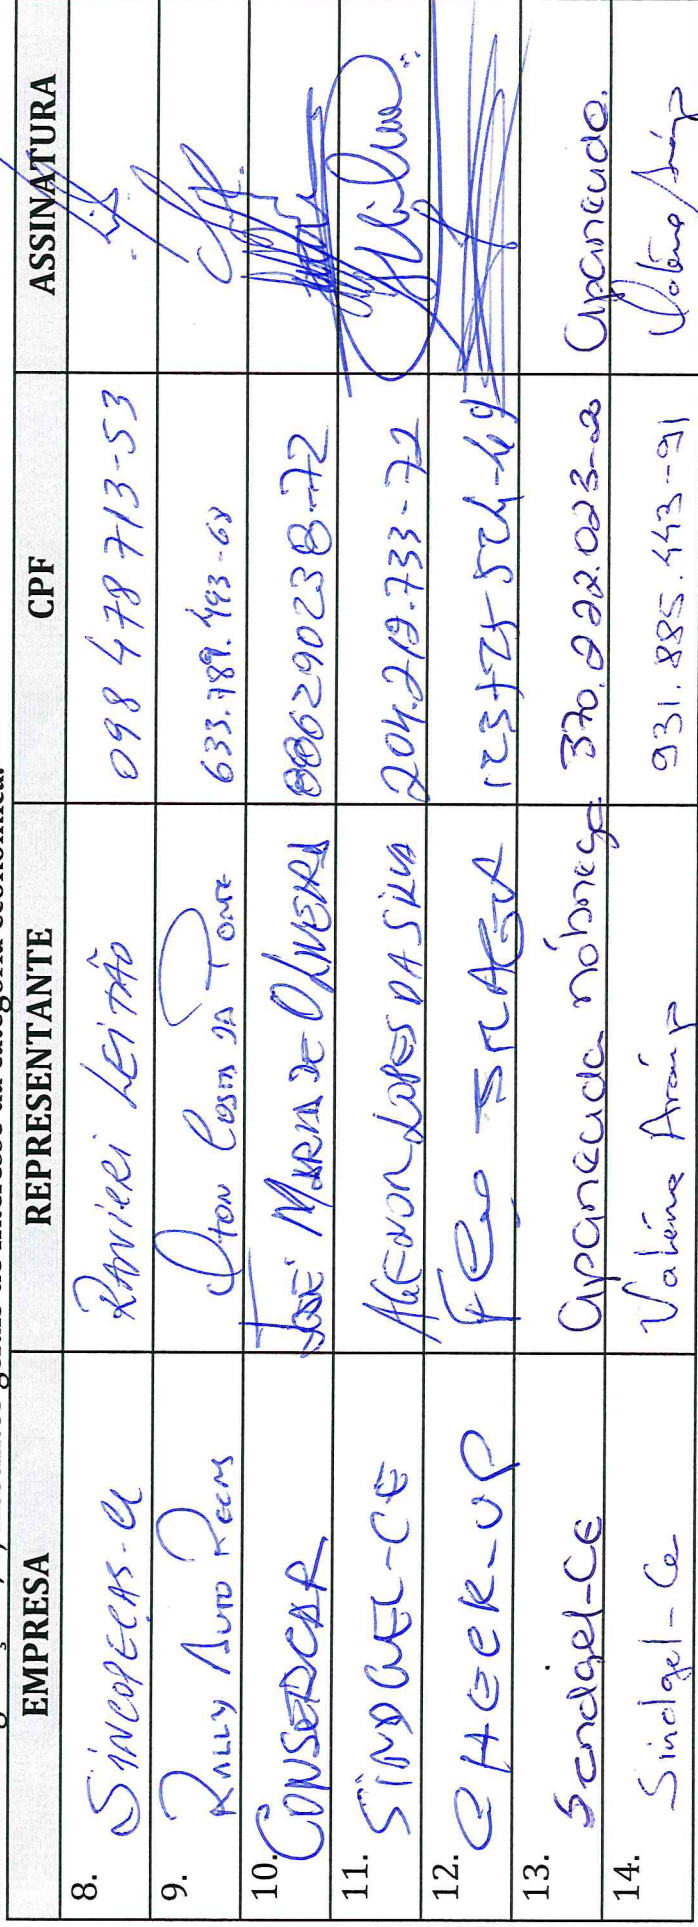 EMPRESA REPRESENTANTE CPF ASSINATURA
8. SINCOPEÇAS-CE RANIERI LEITÃO 098 478 713-53
9. RALLY AUTO PEÇAS OTON COSTA DA PONTE 633.789.493-68
10. CONSERCAR JOSÉ MARIA DE OLIVEIRA 00629023872
11. SINDGEL-CE AGENOR LOPES DA SILVA 204.219.733-72
12. CHECK-UP
13. Sendgel-Ce aparecida nóbrega 370.222.023-20 aparecida.
14. Sindgel-Ce Valéria Araújo 931.885.443-91 Valéria Araújo